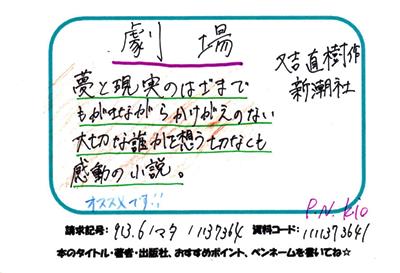 劇場
又吉直樹作
新潮社
夢と現実のはざまで
もがきながらかけがえのない
大切な誰かを想う切なくも
感動の小説。
オススメです!!
P.N. kio
請求記号: 913.6/マタ 111373641 資料コード: 1111373641
本のタイトル・著者・出版社、おすすめポイント、ペンネームを書いてね☆